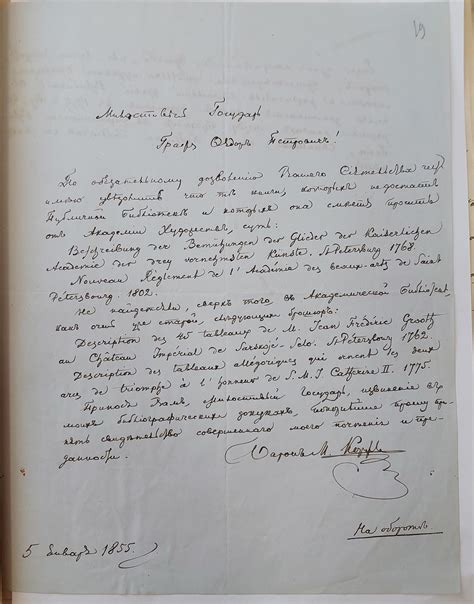 19
Милостивый Государь
Графъ Ѳедоръ Петровичъ!
По обязательному дозволенію Вашего Сіятельства честь
имѣю увѣдомить что тѣ книги, которыхъ недостаетъ
Публичной Библіотекѣ и которыя она смѣетъ просить
отъ Академіи Художествъ, суть:
Beschreibung der Bemühungen der Glieder der Kaiserlichen
Academie der drey vornehmsten Künste. St-Petersburg 1768.
Nouveau Règlement de l'Académie des beaux-arts de Saint
Pétersbourg. 1802.
Не найдется ли, сверхъ того въ Академической Библіотекѣ,
какъ очень уже старой, слѣдующихъ брошюръ:
Description des 45 tableaux de M. Jean Frédéric Grooth
au Château Impérial de Sarskoje-Selo. St-Pétersbourg 1762.
Description des tableaux allégoriques qui ornent les deux
arcs de triomphe à l'honneur de S. M. I. Catherine II. 1775.
Принося Вамъ, Милостивый Государь, извиненіе въ
моихъ библіографическихъ докукахъ, покорнѣйше прошу при-
нять свидѣтельство совершеннаго моего почтенія и пре-
данности.
Баронъ М. Корфъ
На оборотѣ
5 Января 1855.